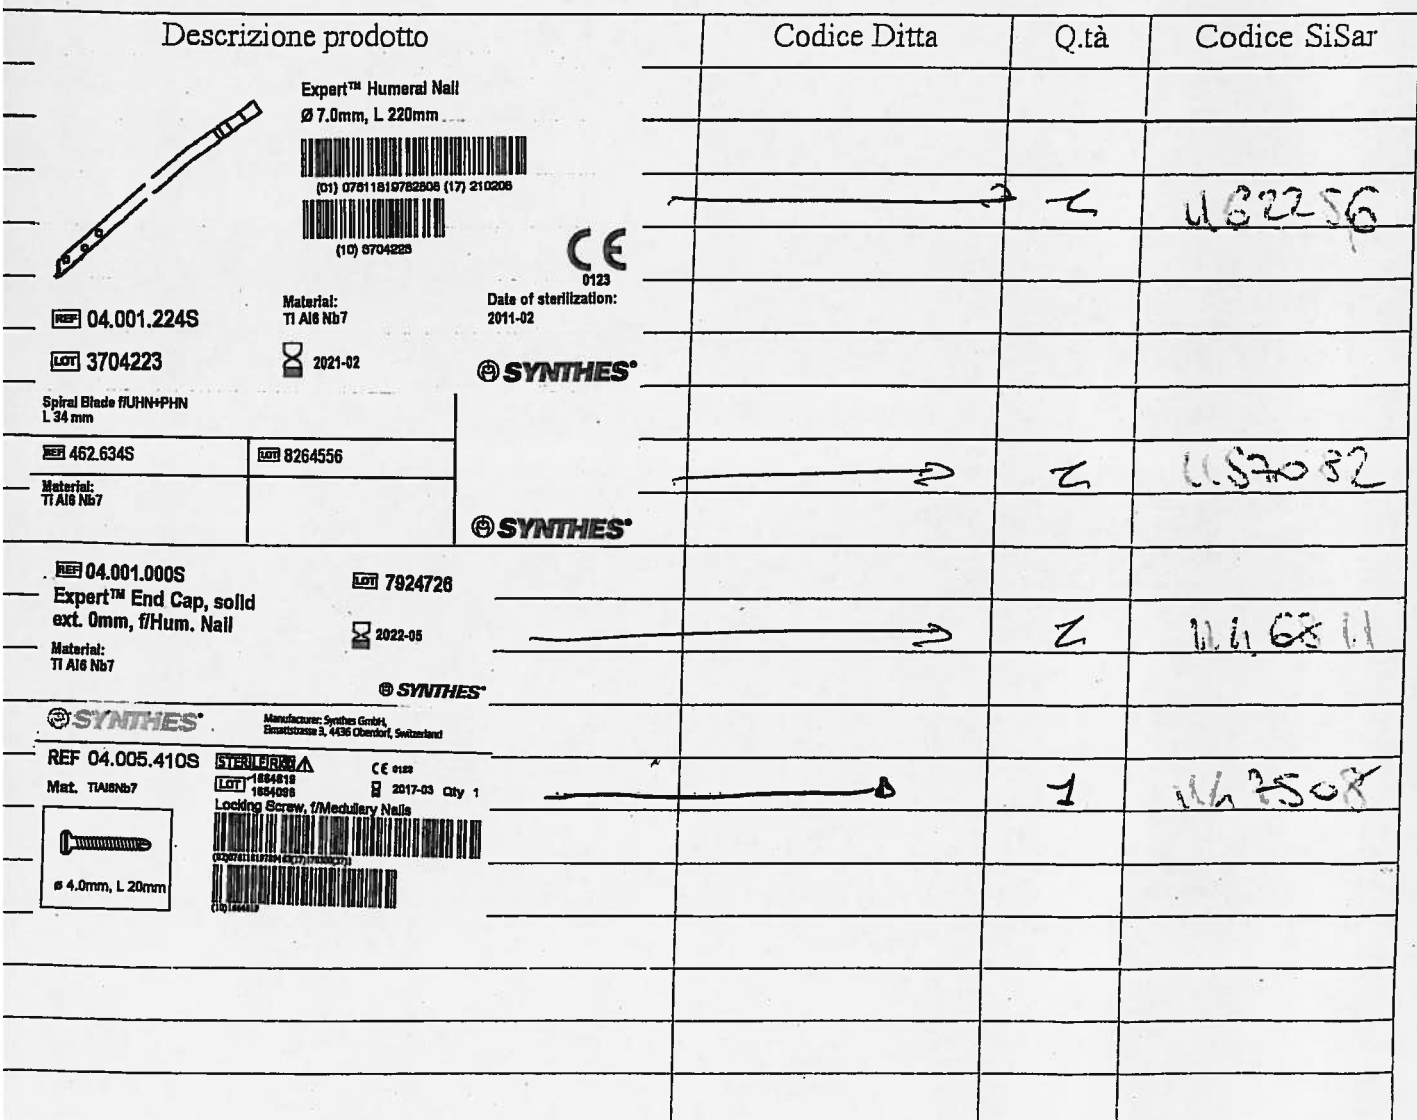 Descrizione prodotto Codice Ditta Q.tà Codice SiSar
Expert™ Humeral Nail
Ø 7.0mm, L 220mm
(01) 07611819782808 (17) 210206
(10) 3704223
CE
0123
REF 04.001.224S
Material:
Ti Al6 Nb7
Date of sterilization:
2011-02
LOT 3704223
2021-02
SYNTHES®
Spiral Blade f/UHN+PHN
L 34 mm
REF 462.634S LOT 8264556
Material:
Ti Al6 Nb7
SYNTHES®
REF 04.001.000S LOT 7924726
Expert™ End Cap, solid
ext. 0mm, f/Hum. Nail
2022-05
Material:
Ti Al6 Nb7
SYNTHES®
SYNTHES®
Manufacturer: Synthes GmbH,
Eimattstrasse 3, 4436 Oberdorf, Switzerland
REF 04.005.410S STERILE R
Mat. TiAl6Nb7
LOT 1884819
CE 0123
2017-03 Qty 1
1
Locking Screw, f/Medullary Nails
ø 4.0mm, L 20mm
(10)1884819